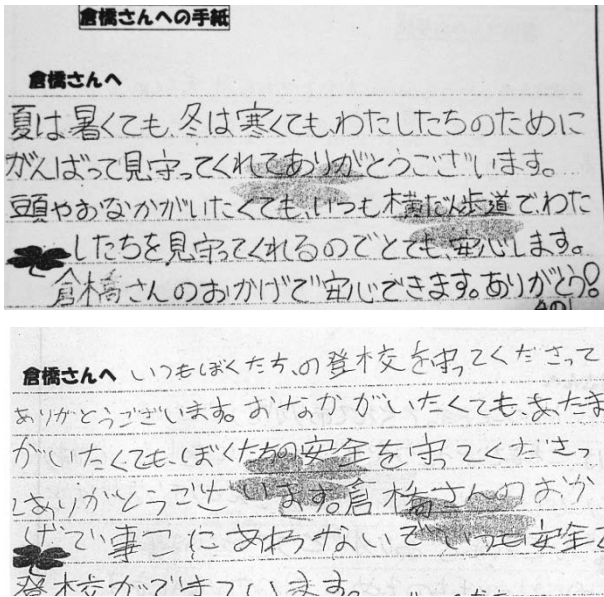 倉橋さんへの手紙
倉橋さんへ
夏は暑くても、冬は寒くても、わたしたちのために
がんばって見守ってくれてありがとうございます。
頭やおなかがいたくても、いつも横だん歩道でわた
したちを見守ってくれるのでとても、安心します。
倉橋さんのおかげで安心できます。ありがとう!
倉橋さんへ いつもぼくたち、の登校を守ってくださって
ありがとうございます。おなかがいたくても、あたま
がいたくても、ぼくたちの安全を守ってくださっ
てありがとうございます。倉橋さんのおか
げで事こにあわないでいつも安全
登校ができています。